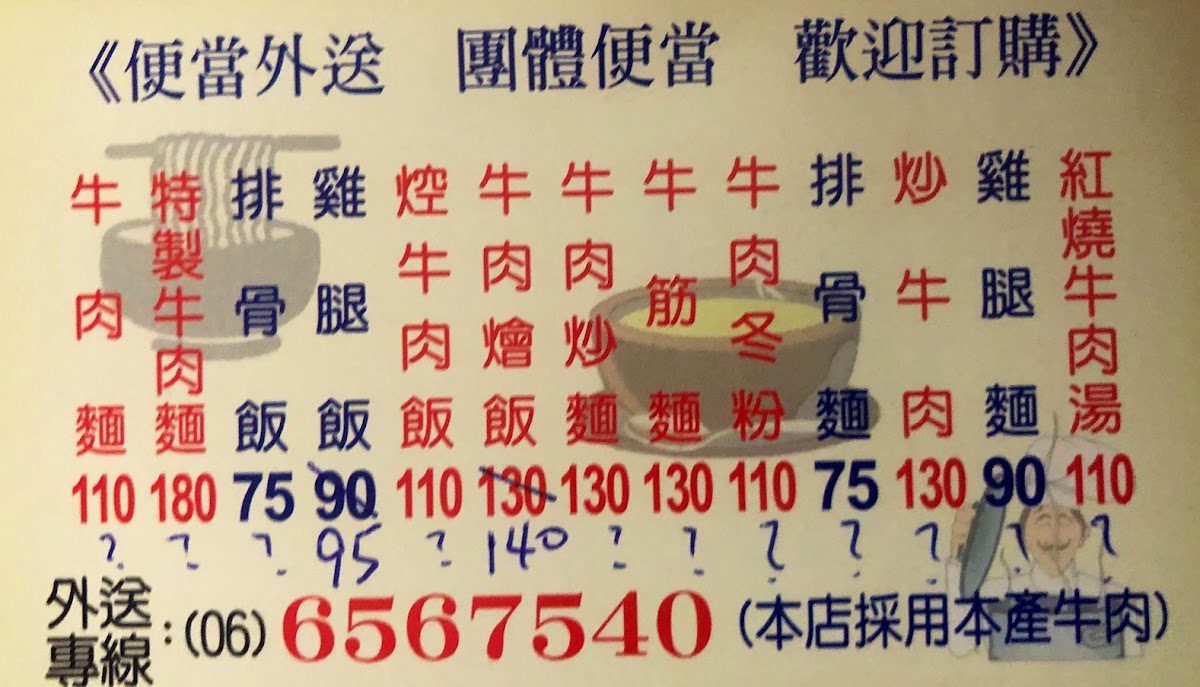 《便當外送 團體便當 歡迎訂購》
牛肉麵 110 ?
特製牛肉麵 180 ?
排骨飯 75 ?
雞腿飯 90 95
焢牛肉飯 110 ?
牛肉燴飯 130 140
牛肉炒麵 130 ?
牛筋麵 130 ?
牛肉冬粉 110 ?
排骨麵 75 ?
炒牛肉 130 ?
雞腿麵 90 ?
紅燒牛肉湯 110 ?
外送專線:(06)6567540 (本店採用本產牛肉)